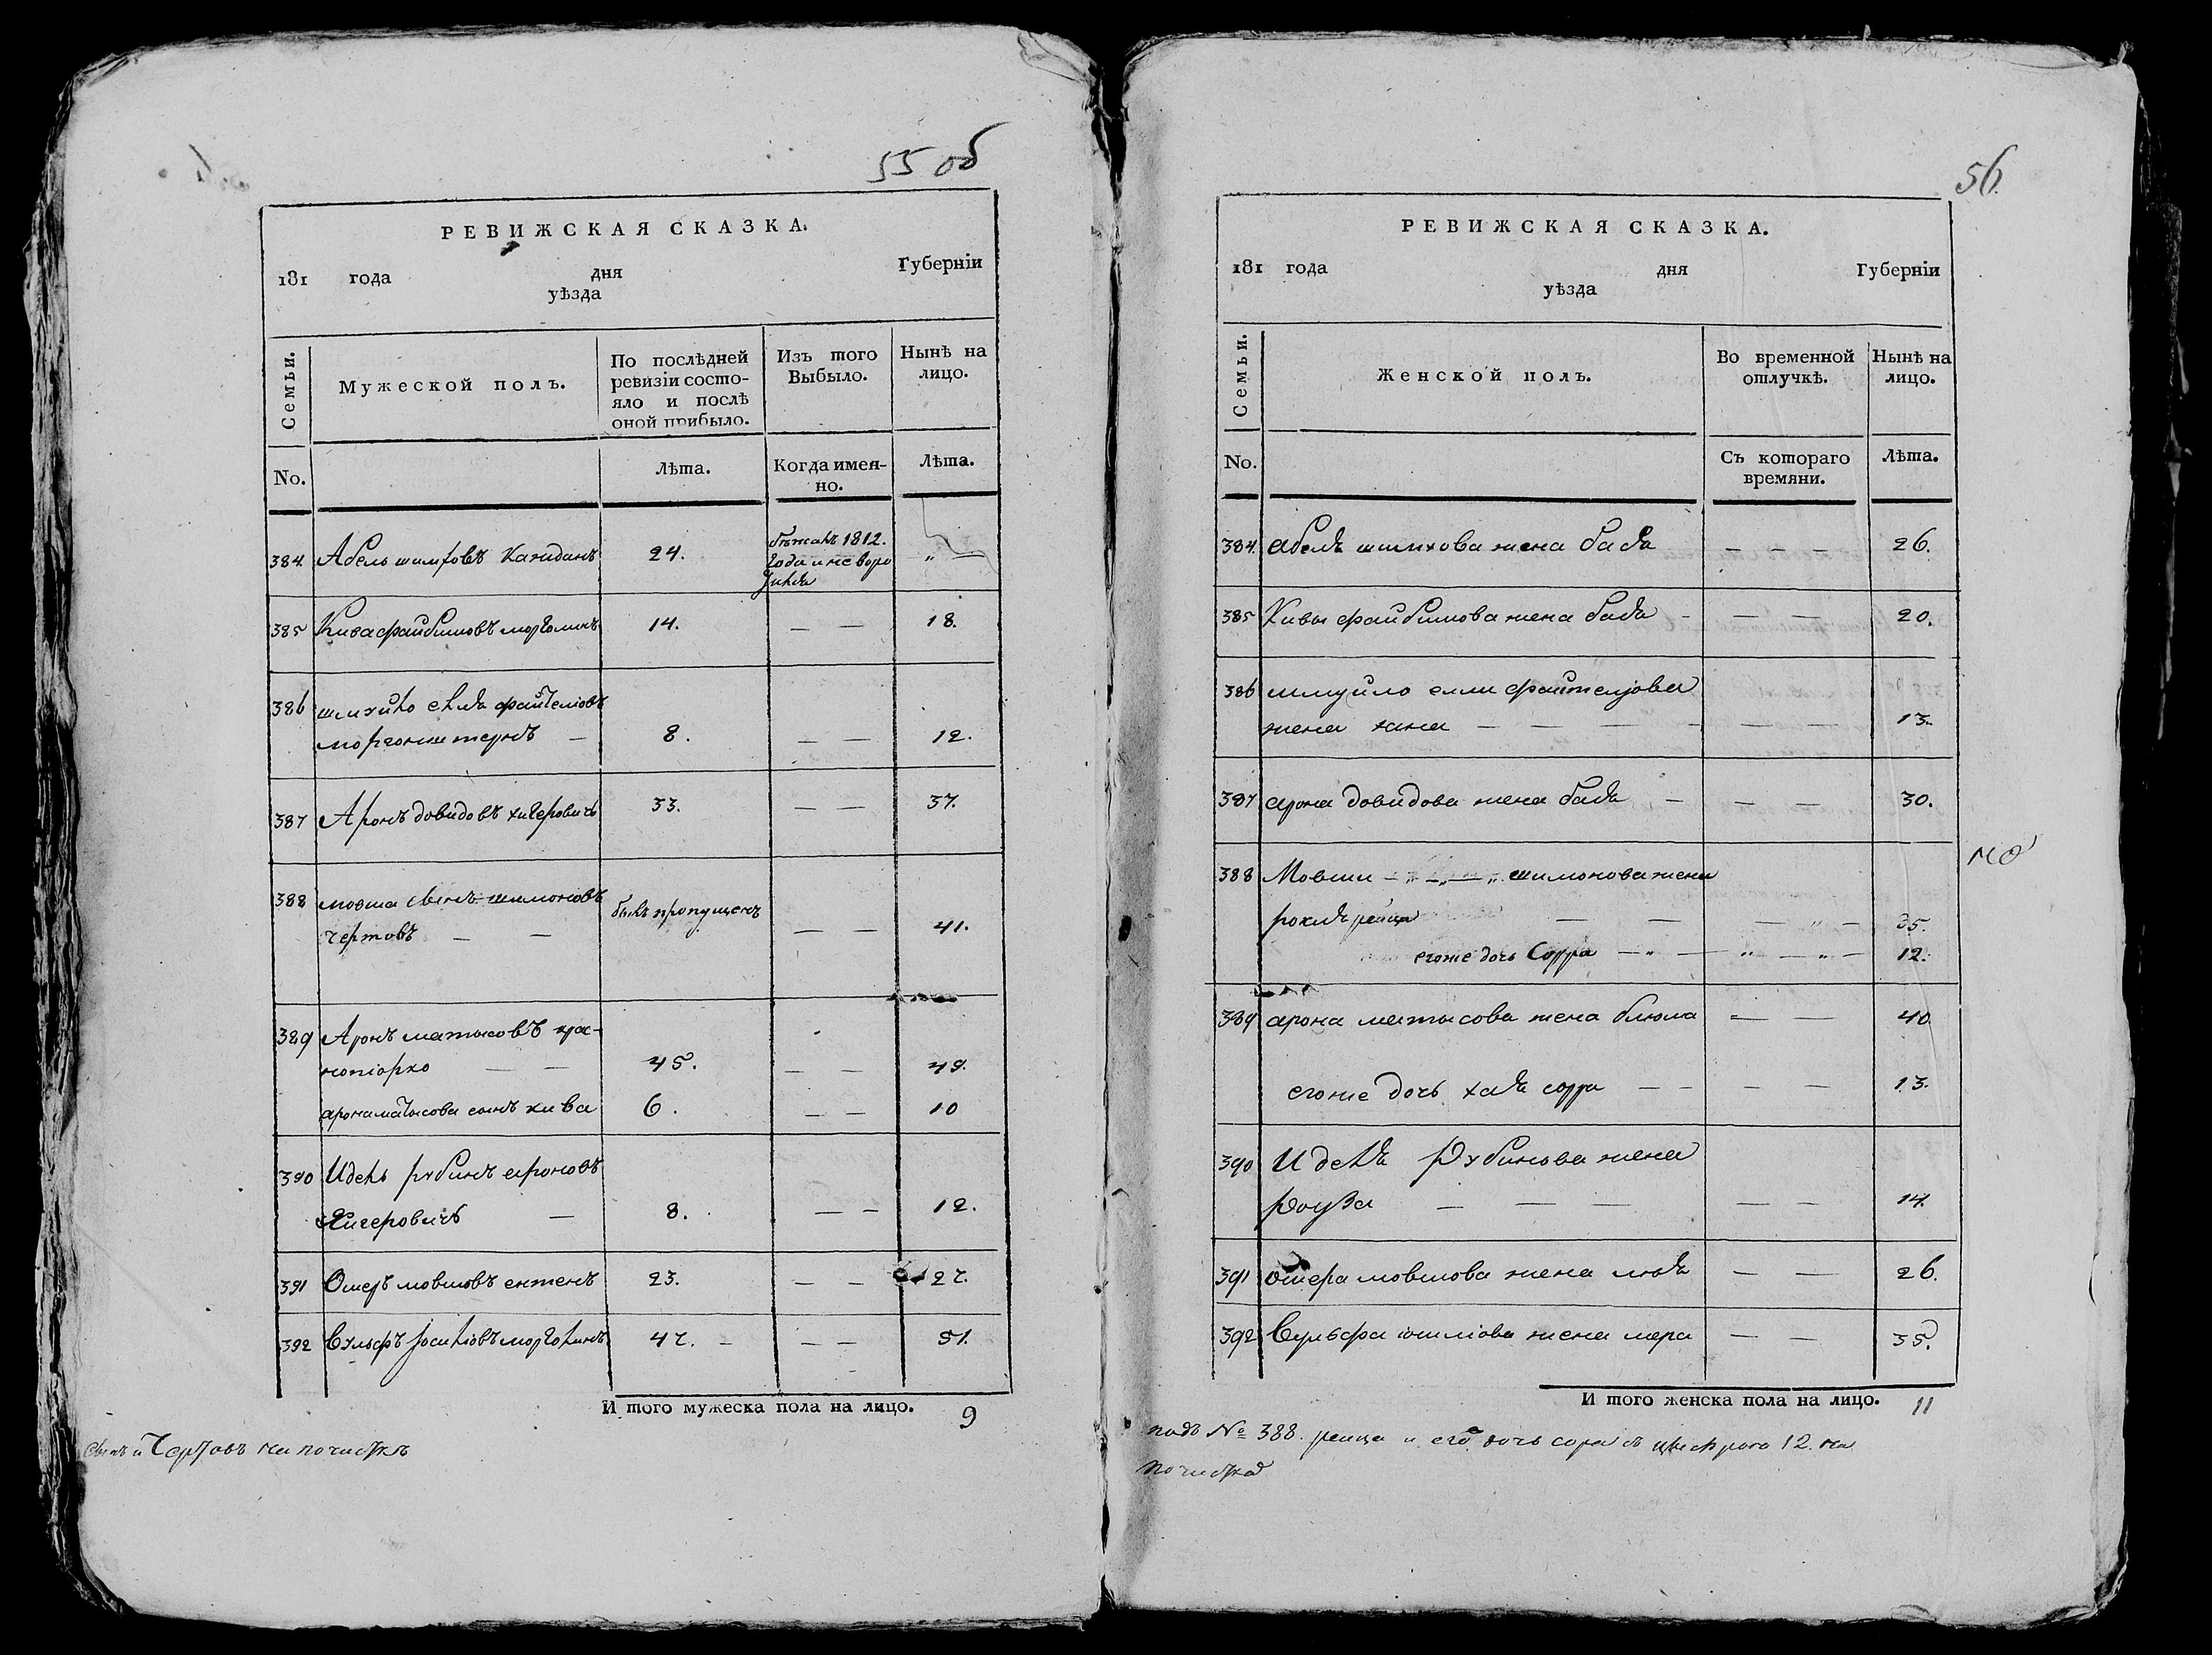 55 об
РЕВИЖСКАЯ СКАЗКА.
181 года дня Губерніи
уѣзда
Семьи.
Мужеской полъ.
По послѣдней ревизіи состо-
яло и послѣ
оной прибыло.
Изъ того
Выбыло.
Нынѣ на
лицо.
No.
Лѣта.
Когда имен-
но.
Лѣта.
384 Абель шимховъ Кагиданъ 24. бѣжалъ 1812. „ —
года и не воро
385 Кива файбишовъ морголинъ 14. — — 18.
386 файтеліовъ
моргонштернъ — 8. — — 12.
387 Аронъ довидовъ хигеровичъ 33. — — 37.
388 мовша шимоновъ былъ пропущенъ
чертовъ — — — — 41.
389 Аронъ матысовъ кра-
нопіорко — — 45. — — 49.
арона матысова сынъ кива 6. — — 10
390 Идель рубинъ ароновъ
Хигеровичъ — 8. — — 12.
391 Ошеръ мовшовъ ентенъ 23. — — 27.
392 Вульфъ морголинъ 47. — — — 51.
И того мужеска пола на лицо. 9
Чертовъ на почисткѣ
56.
РЕВИЖСКАЯ СКАЗКА.
181 года дня Губерніи
уѣзда
Семьи.
Женской полъ.
Во временной
отлучкѣ.
Нынѣ на
лицо.
No.
Съ котораго
времяни.
Лѣта.
384. абеля шимхова жена бася — — — 26.
385 Кивы файбишова жена бася — — — 20.
386 шмуйло елли файтеліова
жена хана — — — — — — 13.
387 арона довидова жена бася — — — 30.
388 Мовши — „ — „ — „ шимонова жена
рохля рейца — — — „ — 35.
егоже дочь Сорра — „ — „ — „ — 12.
389 арона матысова жена блюма — — 40
егоже дочь хая сорра — — — — 13.
390 Иделя Рубинова жена
Роуза — — — — — 14.
391 ошера мовшова жена — — 26.
392 Вульфа жена мера — — 35.
И того женска пола на лицо. 11
подъ № 388. рейца и его дочь сора съ цифрою 12. на
почисткѣ